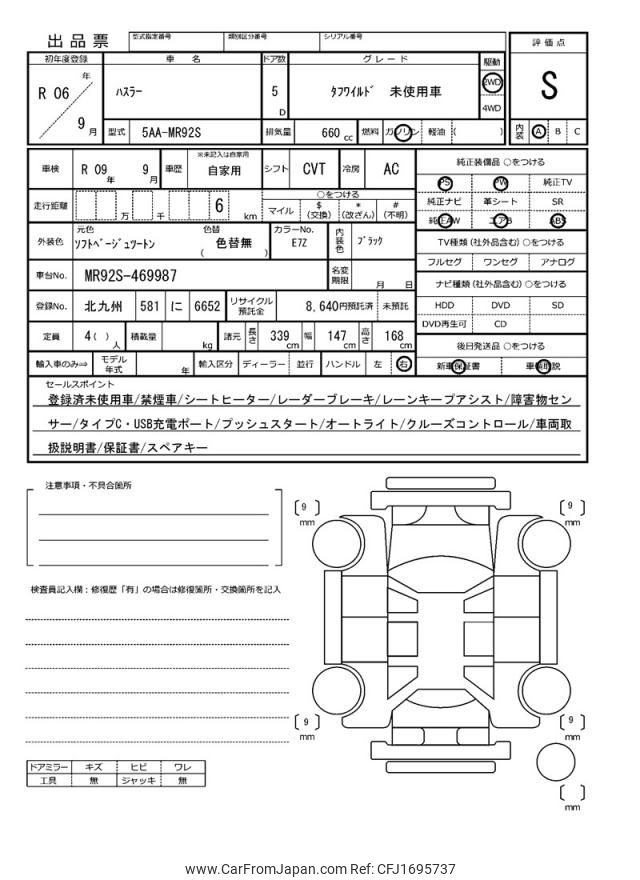 出品票
型式指定番号 類別区分番号 シリアル番号
評価点
初年度登録 車 名 ドア数 グレード 駆動
R 06 年 9 月
ハスラー
5 D
タフワイルド 未使用車
2WD
4WD
S
型式 5AA-MR92S 排気量 660 cc 燃料 ガソリン 軽油 ( )
内装 A B C
車検 R 09 年 9 月 車歴 ※未記入は自家用 自家用 シフト CVT 冷房 AC
純正装備品 ○をつける
PS PW 純正TV
走行距離 万 千 6 km
○をつける
マイル $ (交換) * (改ざん) # (不明)
純正ナビ 革シート SR
純正AW エアB ABS
外装色 元色 ソフトベージュツートン 色替 ( 色替無 ) カラーNo. E7Z 内装色 ブラック
TV種類 (社外品含む) ○をつける
フルセグ ワンセグ アナログ
車台No. MR92S-469987 名変期限 月 日
ナビ種類 (社外品含む) ○をつける
登録No. 北九州 581 に 6652 リサイクル預託金 8,640円預託済 未預託
HDD DVD SD
DVD再生可 CD
定員 4 ( ) 人 積載量 kg 諸元 長さ 339 cm 幅 147 cm 高さ 168 cm
後日発送品 ○をつける
輸入車のみ⇒ モデル年式 年 輸入区分 ディーラー 並行 ハンドル 左 右
新車保証書 車輌取説
セールスポイント
登録済未使用車/禁煙車/シートヒーター/レーダーブレーキ/レーンキープアシスト/障害物セン
サー/タイプC・USB充電ポート/プッシュスタート/オートライト/クルーズコントロール/車両取
扱説明書/保証書/スペアキー
注意事項・不具合箇所
[ 9 ] mm
[ 9 ] mm
検査員記入欄：修復歴「有」の場合は修復箇所・交換箇所を記入
[ 9 ] mm
[ 9 ] mm
ドアミラー キズ ヒビ ワレ
工具 無 ジャッキ 無
[ ] mm
www.CarFromJapan.com Ref: CFJ1695737